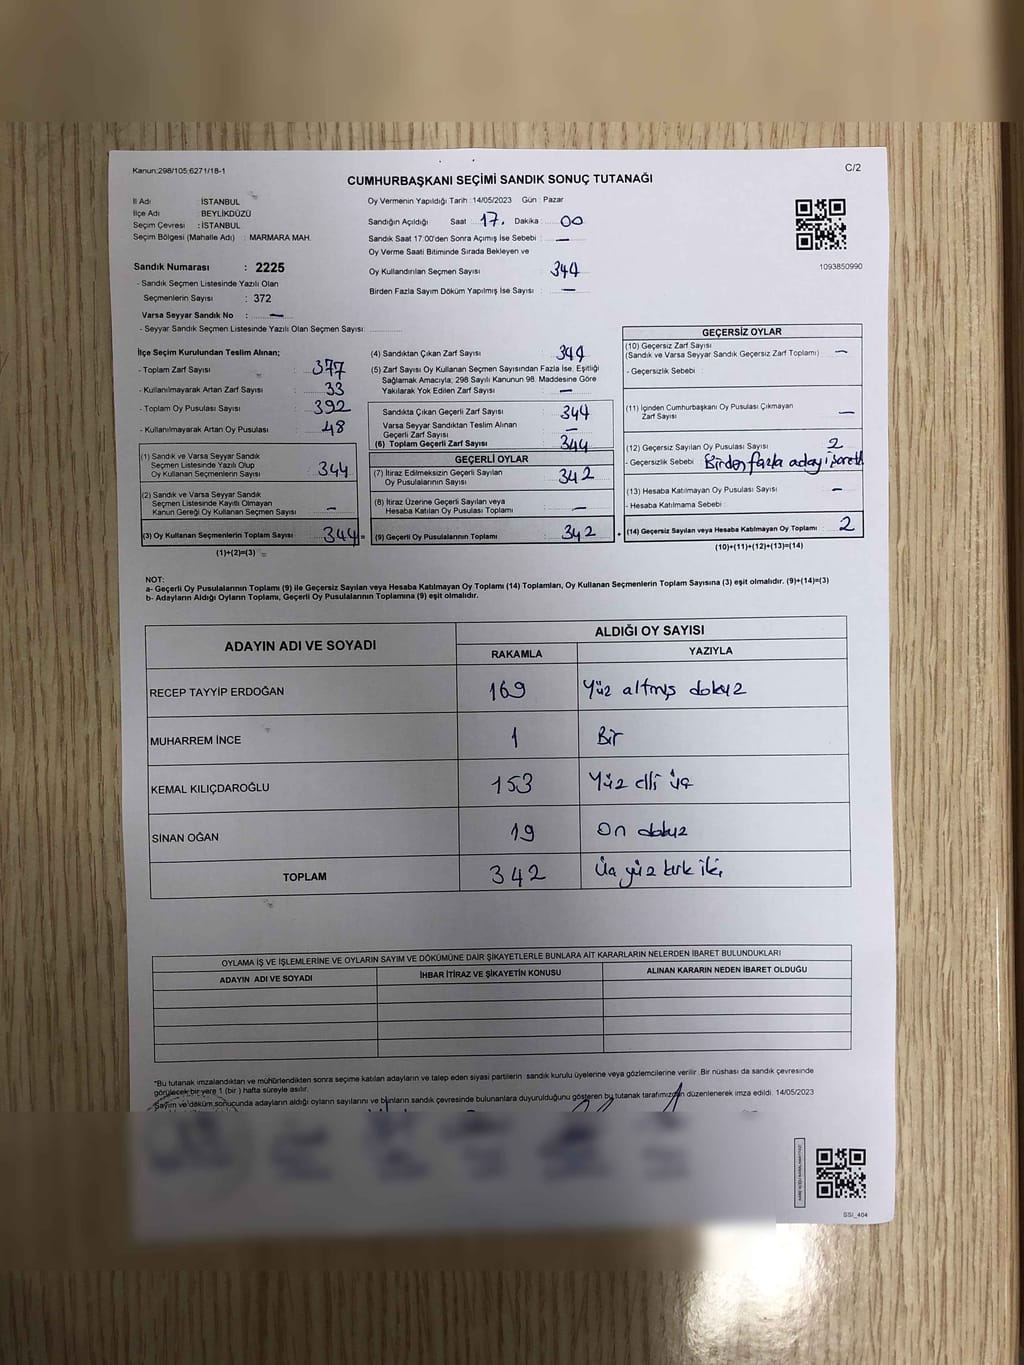 Kanun:298/105;6271/18-1
C/2
CUMHURBAŞKANI SEÇİMİ SANDIK SONUÇ TUTANAĞI
İl Adı : İSTANBUL
İlçe Adı : BEYLİKDÜZÜ
Seçim Çevresi : İSTANBUL
Seçim Bölgesi (Mahalle Adı) : MARMARA MAH.
Sandık Numarası : 2225
- Sandık Seçmen Listesinde Yazılı Olan
Seçmenlerin Sayısı : 372
Varsa Seyyar Sandık No : —
- Seyyar Sandık Seçmen Listesinde Yazılı Olan Seçmen Sayısı: ............
Oy Vermenin Yapıldığı Tarih : 14/05/2023 Gün : Pazar
Sandığın Açıldığı Saat : 17. Dakika : 00
Sandık Saat 17:00'den Sonra Açımış İse Sebebi : —
Oy Verme Saati Bitiminde Sırada Bekleyen ve
Oy Kullandırılan Seçmen Sayısı : 344
Birden Fazla Sayım Döküm Yapılmış İse Sayısı : —
1093850990
İlçe Seçim Kurulundan Teslim Alınan;
- Toplam Zarf Sayısı : 377
- Kullanılmayarak Artan Zarf Sayısı : 33
- Toplam Oy Pusulası Sayısı : 392
- Kullanılmayarak Artan Oy Pusulası : 48
(1) Sandık ve Varsa Seyyar Sandık
Seçmen Listesinde Yazılı Olup
Oy Kullanan Seçmenlerin Sayısı : 344
(2) Sandık ve Varsa Seyyar Sandık
Seçmen Listesinde Kayıtlı Olmayan
Kanun Gereği Oy Kullanan Seçmen Sayısı : —
(3) Oy Kullanan Seçmenlerin Toplam Sayısı : 344 =
(1)+(2)=(3)
(4) Sandıktan Çıkan Zarf Sayısı : 344
(5) Zarf Sayısı Oy Kullanan Seçmen Sayısından Fazla İse, Eşitliği
Sağlamak Amacıyla; 298 Sayılı Kanunun 98. Maddesine Göre
Yakılarak Yok Edilen Zarf Sayısı : —
Sandıkta Çıkan Geçerli Zarf Sayısı : 344
Varsa Seyyar Sandıktan Teslim Alınan
Geçerli Zarf Sayısı : —
(6) Toplam Geçerli Zarf Sayısı : 344
GEÇERLİ OYLAR
(7) İtiraz Edilmeksizin Geçerli Sayılan
Oy Pusulasının Sayısı : 342
(8) İtiraz Üzerine Geçerli Sayılan veya
Hesaba Katılan Oy Pusulası Toplamı : —
(9) Geçerli Oy Pusulalarının Toplamı : 342 +
GEÇERSİZ OYLAR
(10) Geçersiz Zarf Sayısı
(Sandık ve Varsa Seyyar Sandık Geçersiz Zarf Toplamı) : —
- Geçersizlik Sebebi :
(11) İçinden Cumhurbaşkanı Oy Pusulası Çıkmayan
Zarf Sayısı : —
(12) Geçersiz Sayılan Oy Pusulası Sayısı : 2
- Geçersizlik Sebebi : Birden fazla aday işaretli
(13) Hesaba Katılmayan Oy Pusulası Sayısı : —
- Hesaba Katılmama Sebebi :
(14) Geçersiz Sayılan veya Hesaba Katılmayan Oy Toplamı : 2
(10)+(11)+(12)+(13)=(14)
NOT:
a- Geçerli Oy Pusulalarının Toplamı (9) ile Geçersiz Sayılan veya Hesaba Katılmayan Oy Toplamı (14) Toplamları, Oy Kullanan Seçmenlerin Toplam Sayısına (3) eşit olmalıdır. (9)+(14)=(3)
b- Adayların Aldığı Oyların Toplamı, Geçerli Oy Pusulalarının Toplamına (9) eşit olmalıdır.
ADAYIN ADI VE SOYADI ALDIĞI OY SAYISI
RAKAMLA YAZIYLA
RECEP TAYYİP ERDOĞAN 169 Yüz altmış dokuz
MUHARREM İNCE 1 Bir
KEMAL KILIÇDAROĞLU 153 Yüz elli üç
SİNAN OĞAN 19 On dokuz
TOPLAM 342 Üç yüz kırk iki
OYLAMA İŞ VE İŞLEMLERİNE VE OYLARIN SAYIM VE DÖKÜMÜNE DAİR ŞİKAYETLERLE BUNLARA AİT KARARLARIN NELERDEN İBARET BULUNDUKLARI
ADAYIN ADI VE SOYADI İHBAR İTİRAZ VE ŞİKAYETİN KONUSU ALINAN KARARIN NEDEN İBARET OLDUĞU
*Bu tutanak imzalandıktan ve mühürlendikten sonra seçime katılan adayların ve talep eden siyasi partilerin sandık kurulu üyelerine veya gözlemcilerine verilir .Bir nüshası da sandık çevresinde
görülecek bir yere 1 (bir ) hafta süreyle asılır.
Sayım ve döküm sonucunda adayların aldığı oyların sayılarını ve bunların sandık çevresinde bulunanlara duyurulduğunu gösteren bu tutanak tarafımızdan düzenlenerek imza edildi. 14/05/2023
SSI_404